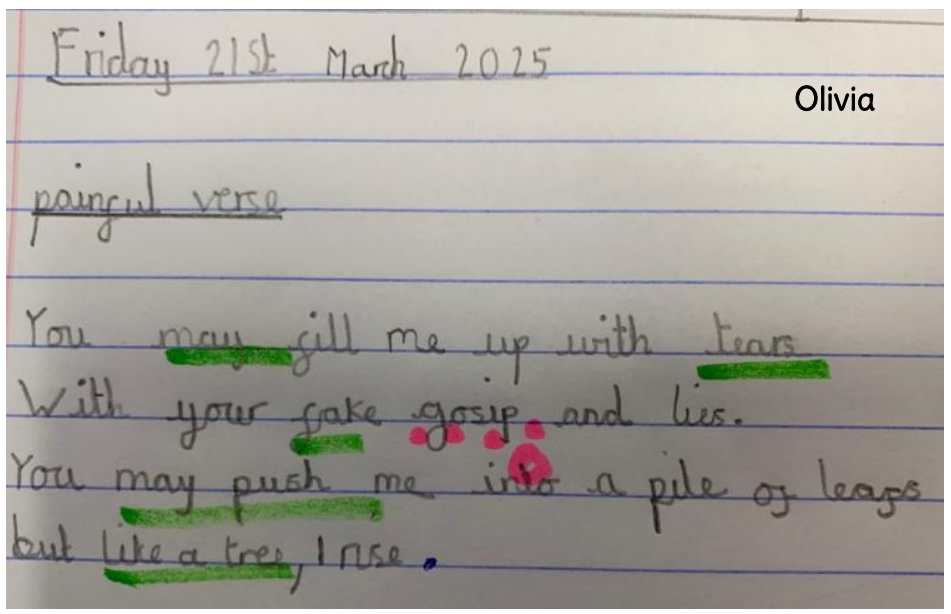 Friday 21st March 2025
Olivia
painful verse
You may fill me up with tears
With your fake gosip and lies.
You may push me into a pile of leafs
but like a tree, I rise.